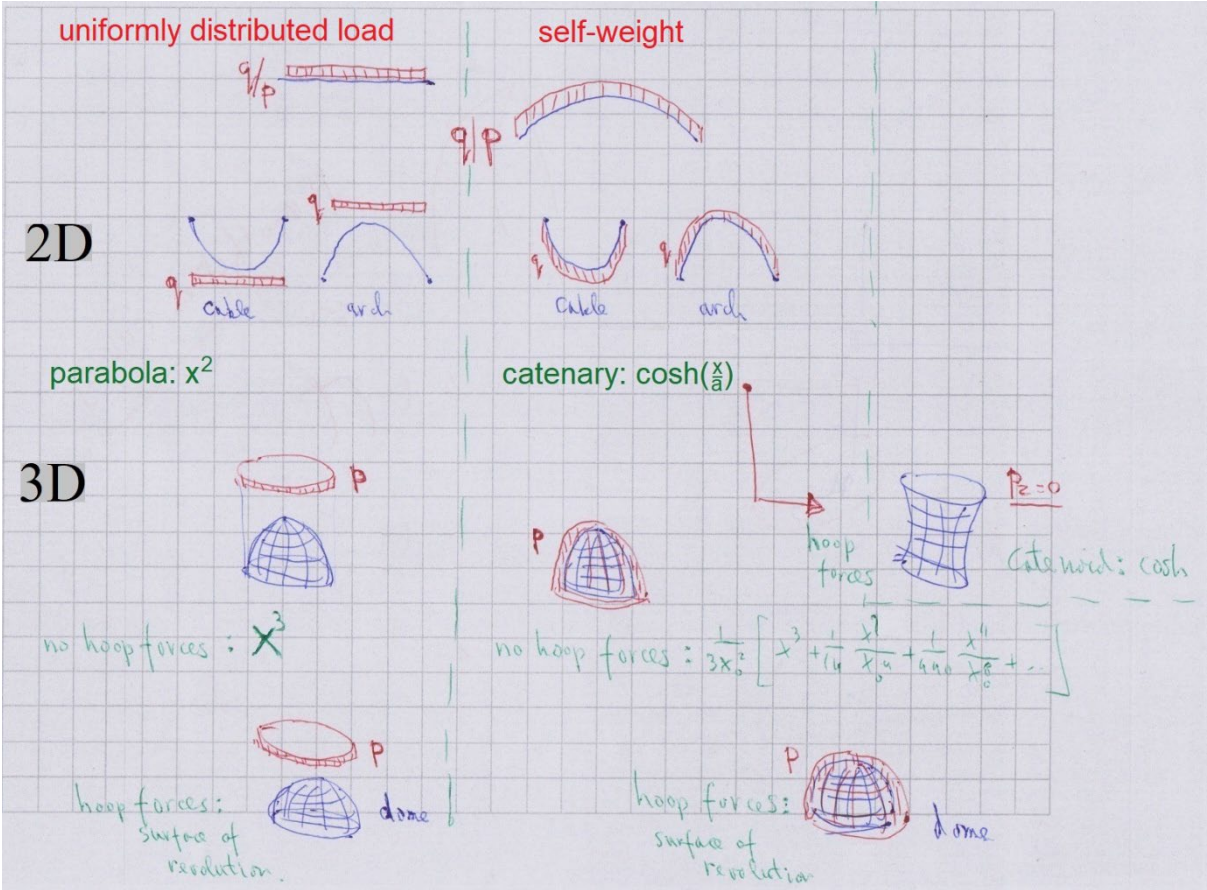 uniformly distributed load
self-weight
q/p
q|p
2D
q
q
cable
arch
q
q
cable
arch
parabola: x²
catenary: cosh(x/a)
3D
p
p
hoop
forces
p_z=0
catenoid: cosh
no hoop forces: x³
no hoop forces: 1/3x₀² [ x³ + 1/14 x⁷/x₀⁴ + 1/440 x¹¹/x₀⁸ + ... ]
p
hoop forces:
surface of
revolution.
dome
p
hoop forces:
surface of
revolution
dome